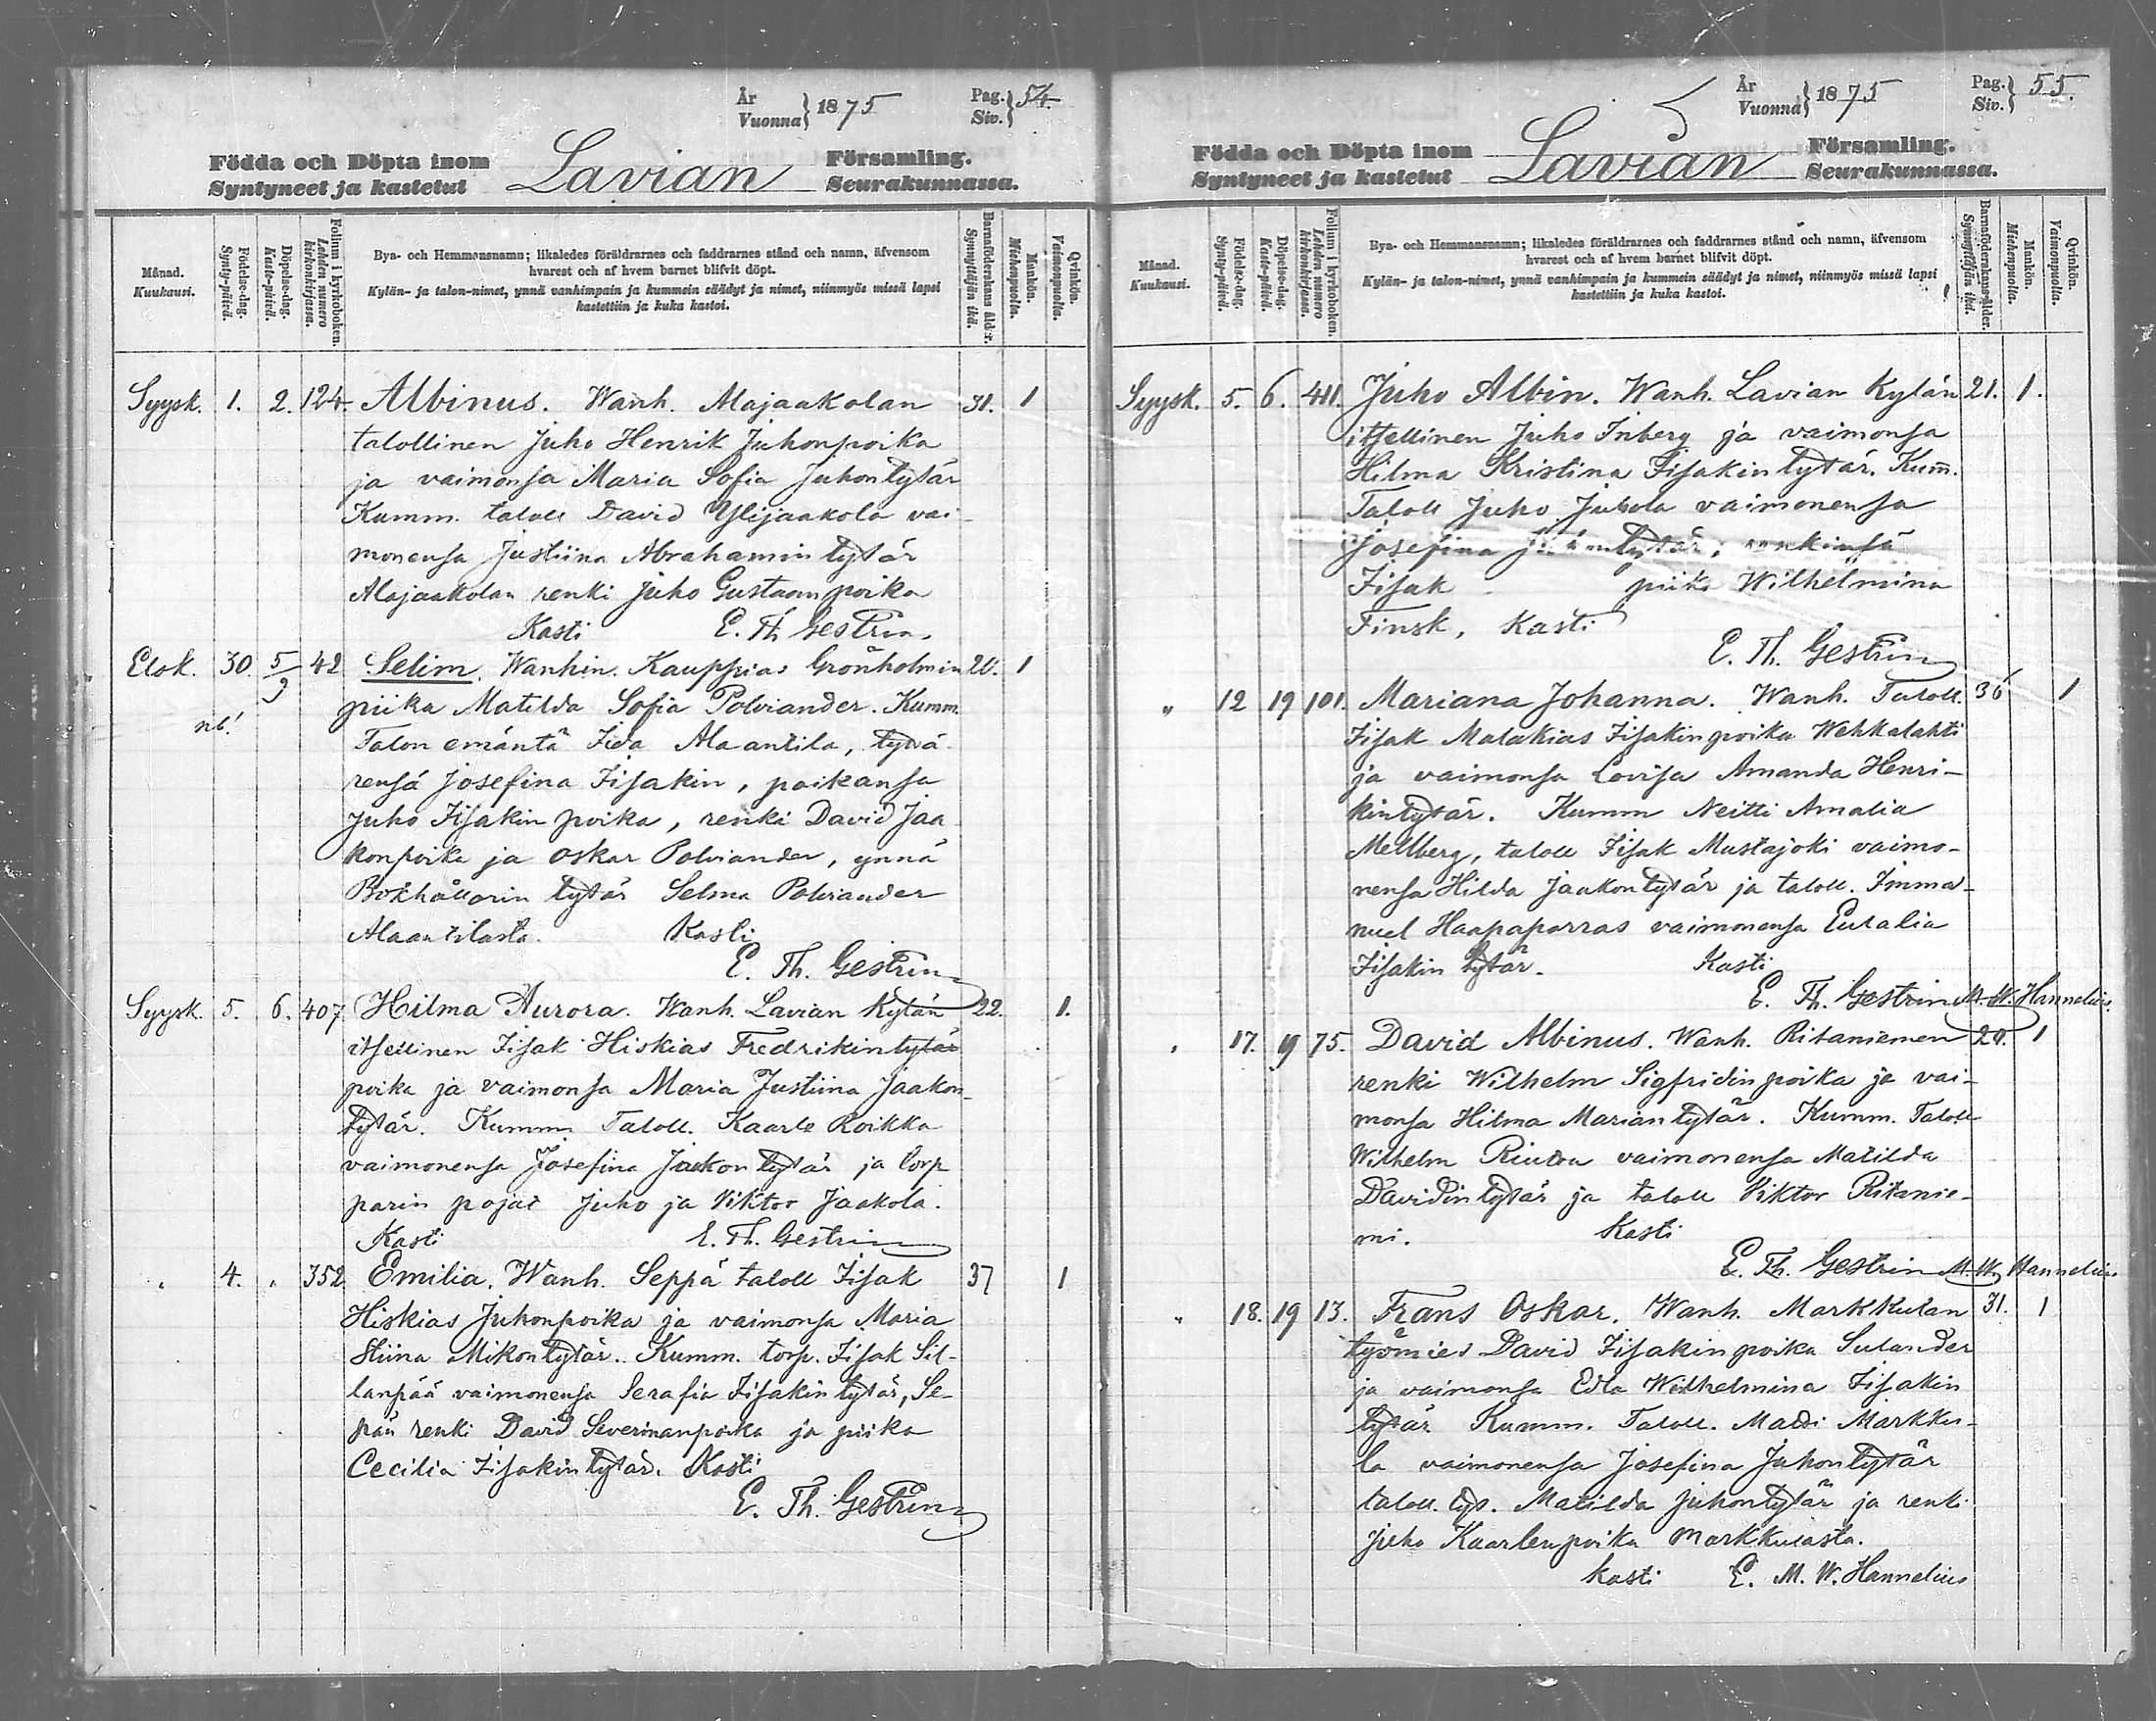 År
Vuonna } 1875
Pag.
Siv. } 54.
Födda och Döpta inom
Syntyneet ja kastetut
Lavian
Församling.
Seurakunnassa.
Månad.
Kuukausi.
Födelse-dag.
Synty-päivä.
Döpelse-dag.
Kaste-päivä.
Folium i kyrkoboken.
Lehden numero kirkonkirjassa.
Bya- och Hemmansnamn; likaledes föräldrarnes och faddrarnes stånd och namn, äfvensom
hvarest och af hvem barnet blifvit döpt.
Kylän- ja talon-nimet, ynnä vanhimpain ja kummein säädyt ja nimet, niinmyös missä lapsi
kastettiin ja kuka kastoi.
Barnaföderskans ålder.
Synnyttäjän ikä.
Mankön.
Miehenpuolla.
Qvinkön.
Vaimonpuolla.
Syysk. 1. 2. 124. Albinus. Wanh. Alajaakolan 31. 1
talollinen Juho Henrik Juhonpoika
ja vaimonsa Maria Sofia Juhontytär
Kumm. taloll David Ylijaakola vai-
monensa Justiina Abrahamintytär
Alajaakolan renki Juho Gustaanpoika
Kasti E. Th. Gestrin.
Elok. 30. 5/9 42 Selim. Wanhin. Kauppias Grönholmin 20. 1
nb! piika Matilda Sofia Polviander. Kumm.
Talon emäntä Iida Alaantila, tytä-
rensä Josefina Iisakin, poikansa
Juho Iisakin poika, renki David Jaa
konpoika ja Oskar Polviander, ynnä
Bokhållarin tytär Selma Polviander
Alaantilasta. Kasti
E. Th. Gestrin
Syysk. 5. 6. 407 Hilma Aurora. Wanh. Lavian Kylän 22. 1.
itsellinen Iisak Hiskias Fredrikintytär
poika ja vaimonsa Maria Justiina Jaakon-
tytär. Kumm. Taloll. Kaarle Roikka
vaimonensa Josefina Jaakontytär ja torp
parin pojat Juho ja Viktor Jaakola.
Kasti E. Th. Gestrin
" 4. " 352 Emilia. Wanh. Seppä taloll Iisak 37 1
Hiskias Juhonpoika ja vaimonsa Maria
Stiina Mikontytär. Kumm. torp. Iisak Sil-
lanpää vaimonensa Serafia Iisakintytär, Se-
pän renki David Severinanpoika ja piika
Cecilia Iisakintytär. Kasti
E. Th. Gestrin
År
Vuonna } 1875
Pag.
Siv. } 55.
Födda och Döpta inom
Syntyneet ja kastetut
Lavian
Församling.
Seurakunnassa.
Månad.
Kuukausi.
Födelse-dag.
Synty-päivä.
Döpelse-dag.
Kaste-päivä.
Folium i kyrkoboken.
Lehden numero kirkonkirjassa.
Bya- och Hemmansnamn; likaledes föräldrarnes och faddrarnes stånd och namn, äfvensom
hvarest och af hvem barnet blifvit döpt.
Kylän- ja talon-nimet, ynnä vanhimpain ja kummein säädyt ja nimet, niinmyös missä lapsi
kastettiin ja kuka kastoi.
Barnaföderskans ålder.
Synnyttäjän ikä.
Mankön.
Miehenpuolla.
Qvinkön.
Vaimonpuolla.
Syysk. 5. 6. 411. Juho Albin. Wanh. Lavian Kylän 21. 1.
itsellinen Juho Inberg ja vaimonsa
Hilma Kristina Iisakintytär. Kum̄.
Taloll Juho Jutila vaimonensa
Josefina tytär, renkinsä
Iisak piika Wilhelmina
Finsk, Kasti
E. Th. Gestrin
" 12 19 101. Mariana Johanna. Wanh. Taloll. 36 1
Iisak Malakias Iisakinpoika Wehkalahti
ja vaimonsa Lovisa Amanda Henri-
kintytär. Kumm Neitti Amalia
Mellberg, taloll Iisak Mustajoki vaimo-
nensa Hilda Jaakontytär ja taloll. Imma-
nuel Haapaparras vaimonensa Eutalia
Iisakin tytär. Kasti
E. Th. Gestrin M. W. Hannelius.
" 17. 19 75. David Albinus. Wanh. Ritaniemen 20. 1
renki Wilhelm Sigfridinpoika ja vai-
monsa Hilma Mariantytär. Kumm. Taloll
Wilhelm vaimonensa Matilda
Davidintytär ja taloll Viktor Ritanie-
mi. Kasti
E. Th. Gestrin M. W. Hannelius
" 18. 19 13. Frans Oskar. Wanh. Markkulan 31. 1
työmies David Iisakinpoika Sulander
ja vaimonsa Edla Wilhelmina Iisakin
tytär Kumm. Taloll. Matti Markku-
la vaimonensa Josefina Juhontytär
taloll. tyt. Matilda Juhontytär ja renki
Juho Kaarlenpoika Markkulasta.
Kasti E. M. W. Hannelius